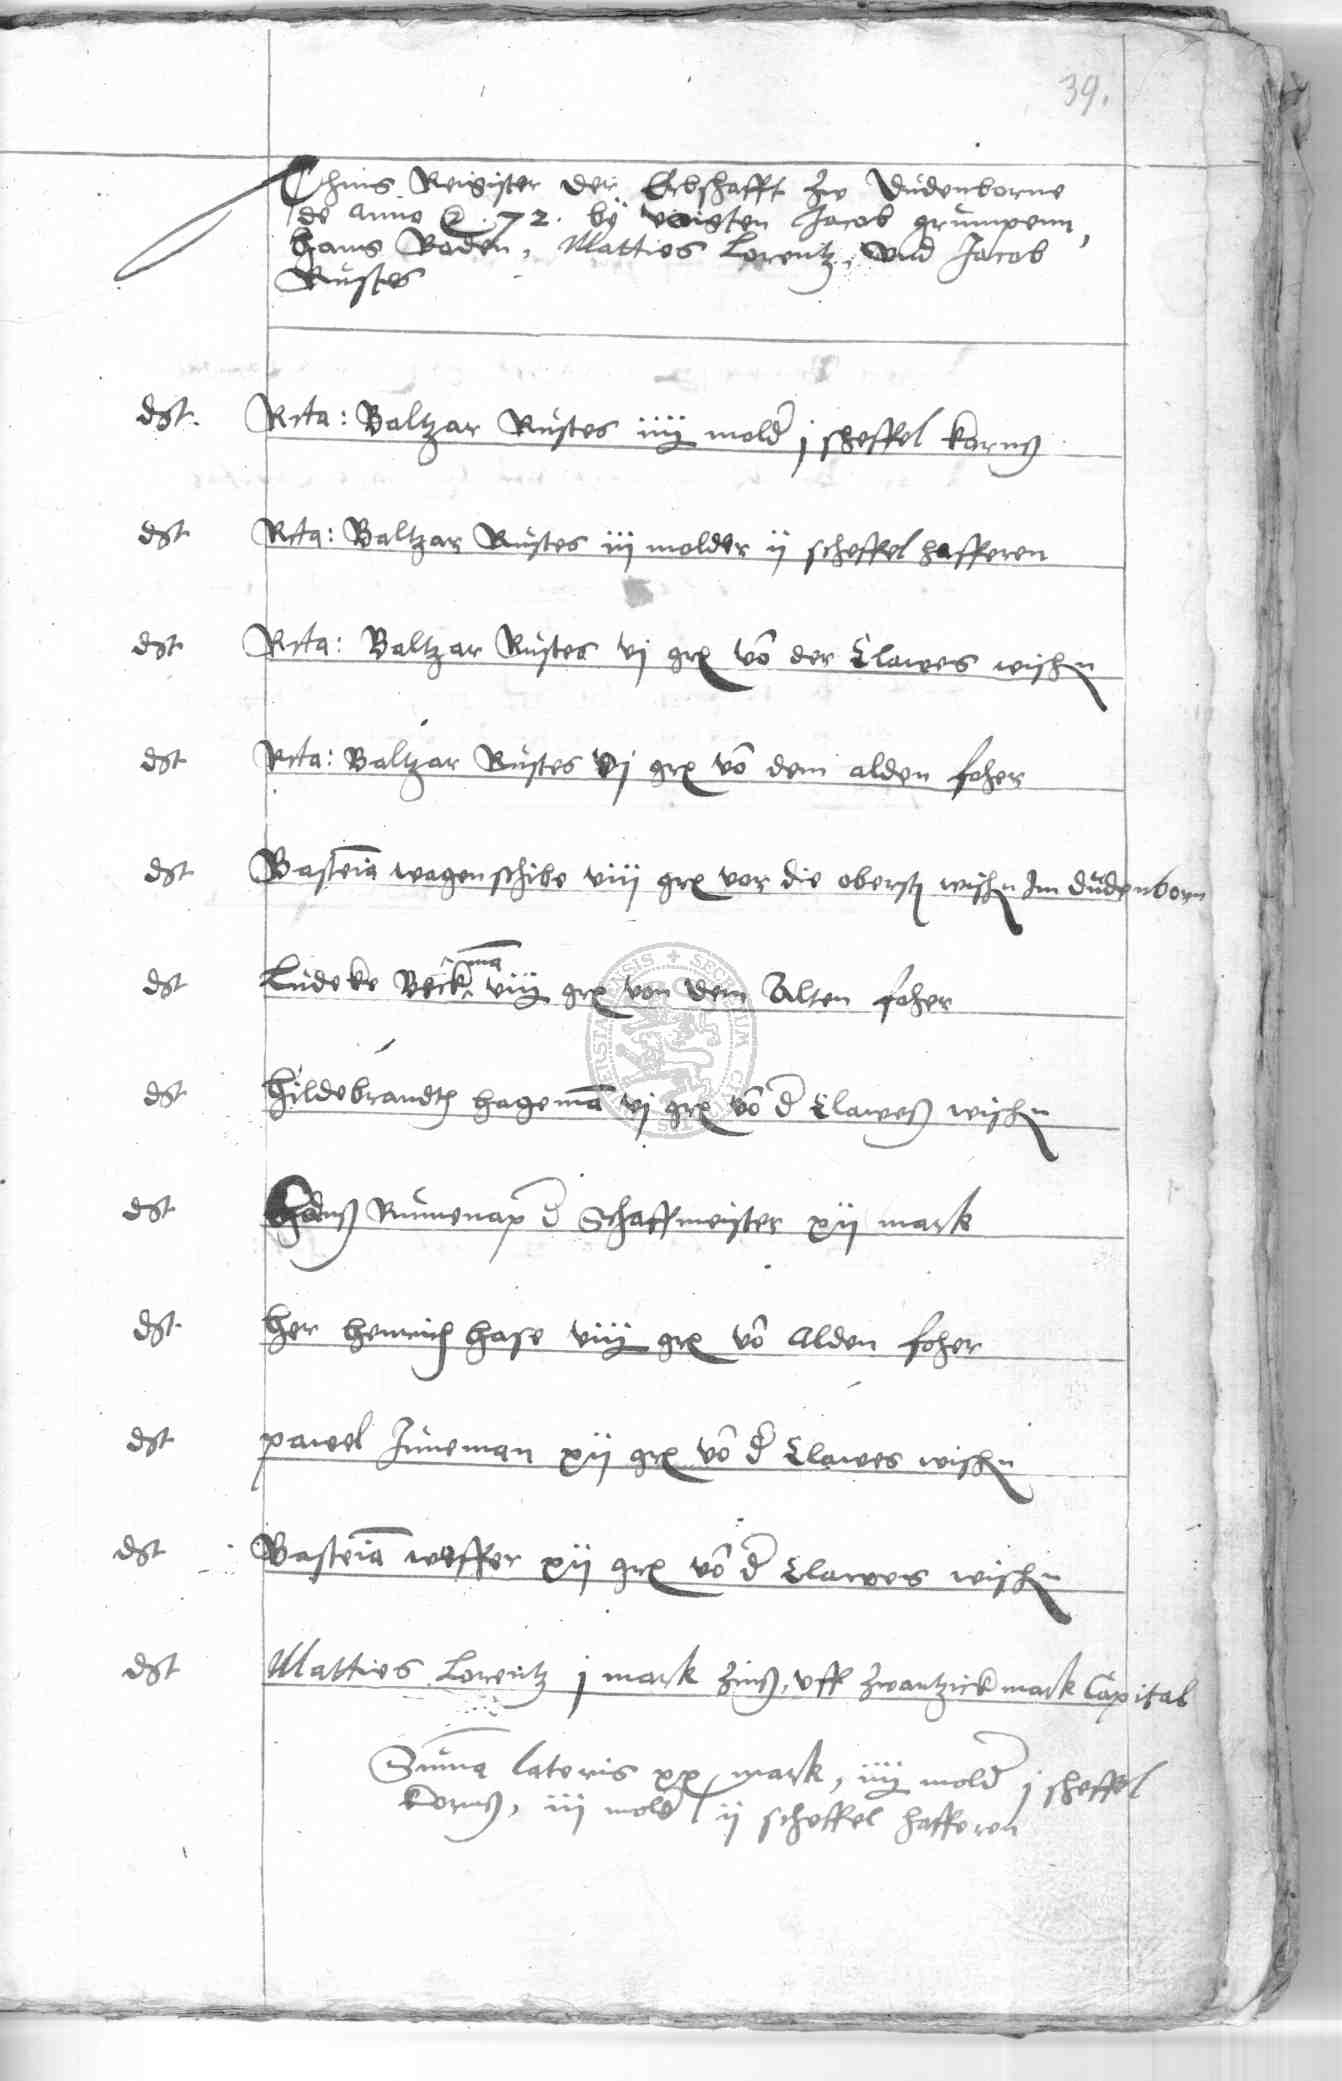 39.
Thins Register der Erbschafft zw Dudenborne
de Anno 72. by voigten Jacob grumpenn,
Hans Boden, Matties Lorentz, vnd Jacob
Rustes
dst. Rcta: Baltzar Rustes iiij mold j scheffel korns
dst Rcta: Baltzar Rustes iij molder ij scheffel hafferen
dst Rcta: Baltzar Rustes vj grx võ der Clawes wischn
dst Rcta: Baltzar Rustes vj grx võ dem alden foher
dst Basteiã wagenschibe viij grx vor die oberst wischn Im dudenborn
dst Ludeke Beckmã viij grx von dem Alten foher
dst Hildebrandt hagemã vj grx võ d Clawes wischn
dst Hans Rumenap d Schaffmeister xij mark
dst Her Henrich Hase viij grx võ Alden foher
dst pawel Juneman xij grx võ d Clawes wischn
dst Basteiã weffer xij grx võ d Clawes wischn
dst Matties Lorentz j mark zins, vff zwantzick mark Capital
Suma lateris xx mark, iiij mold j scheffel
korns, iij mold ij scheffel hafferen